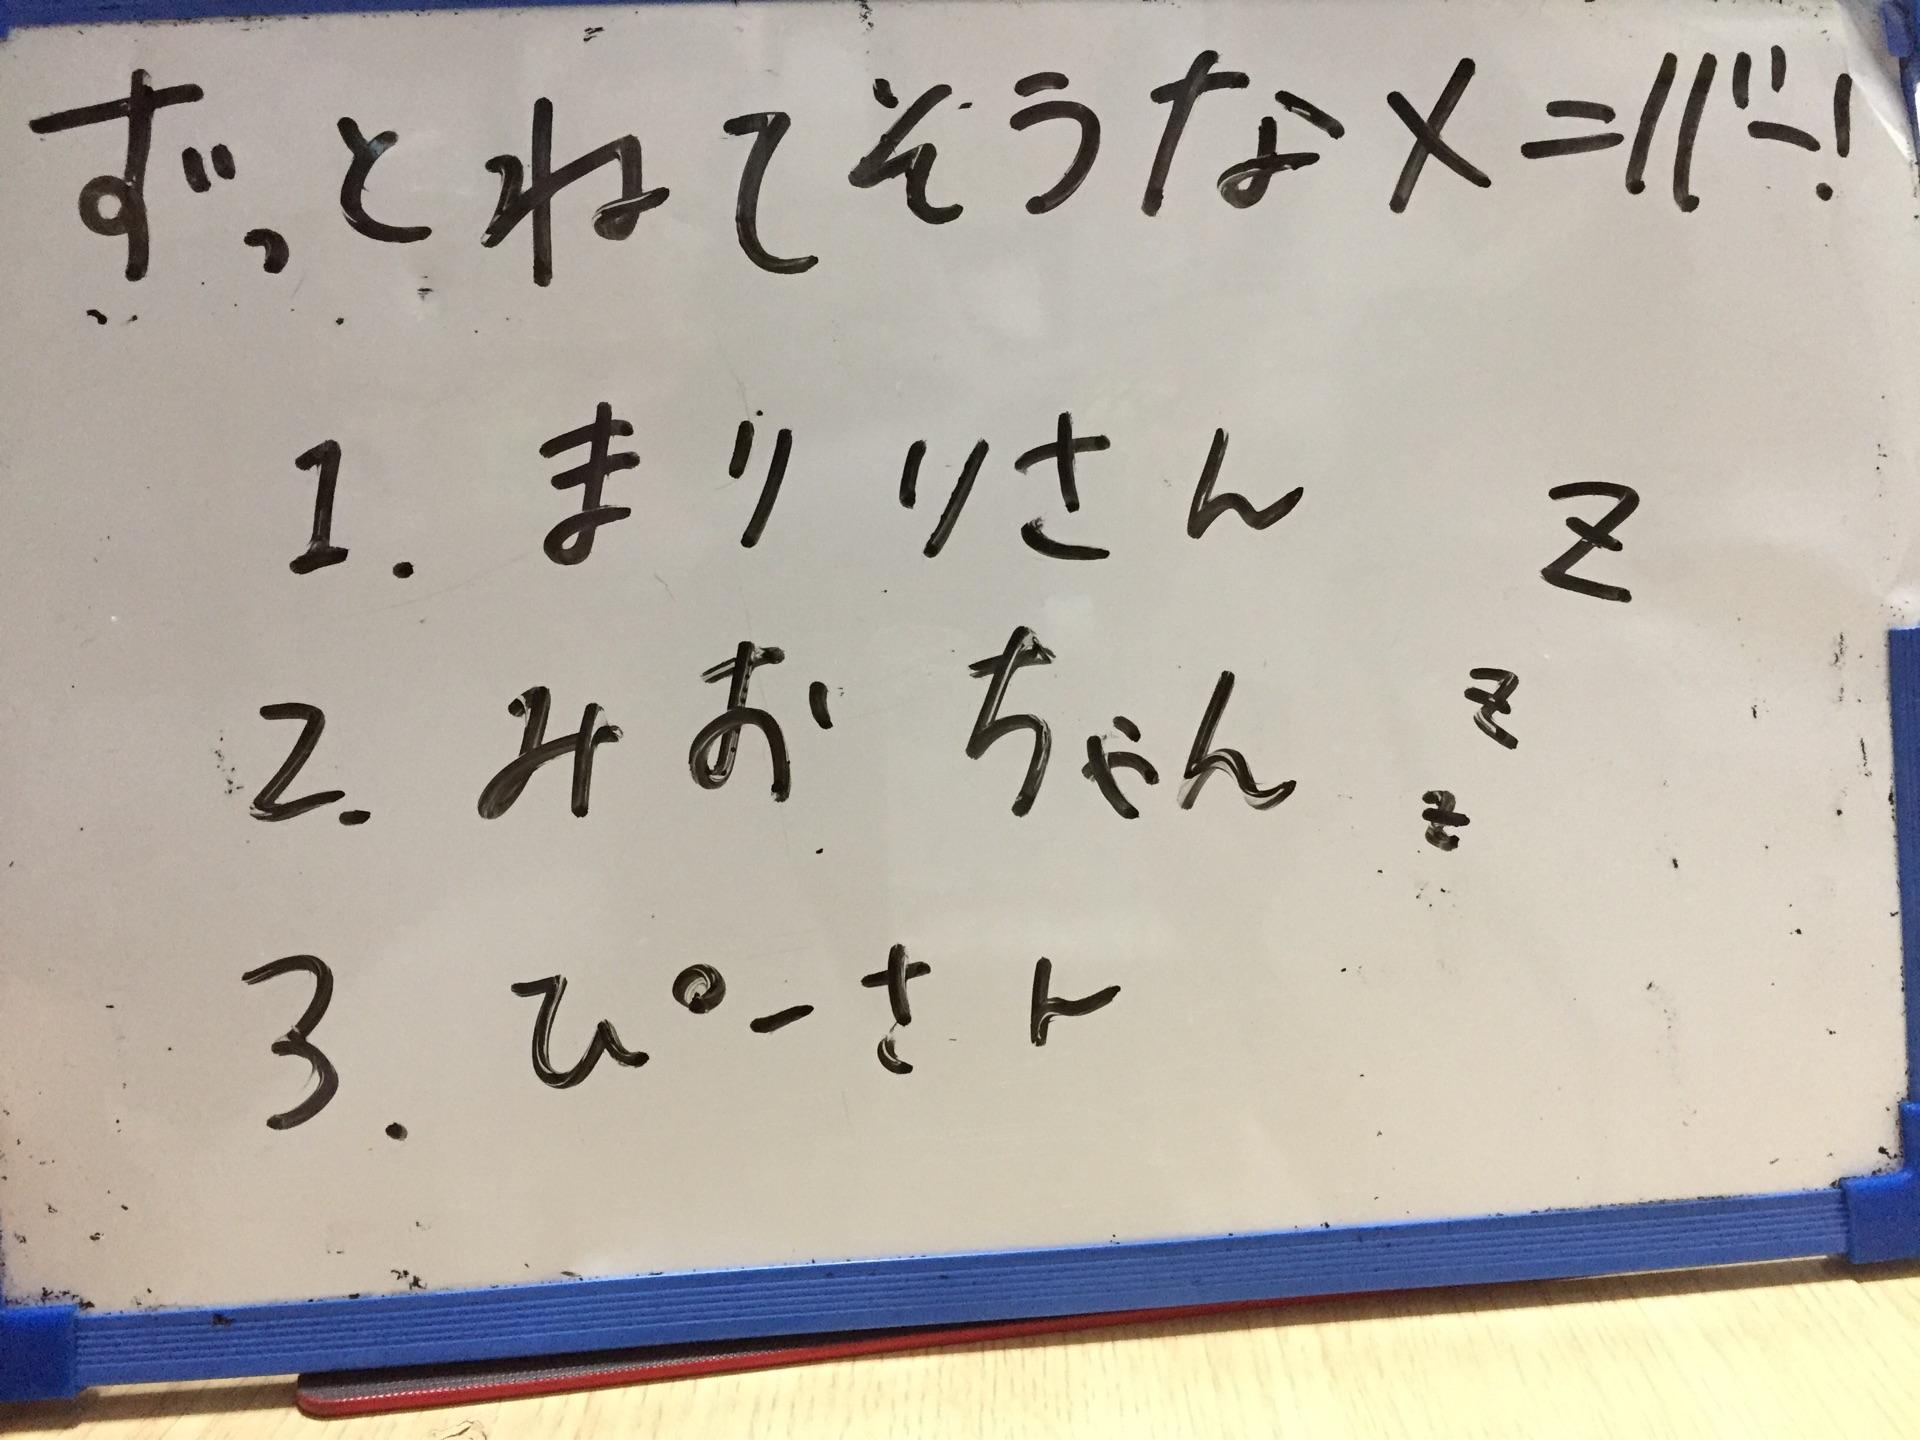 ずっとねてそうなメニバー!
1. まりりさん
2. みおちゃん
3. ぴーさん
z
z
z